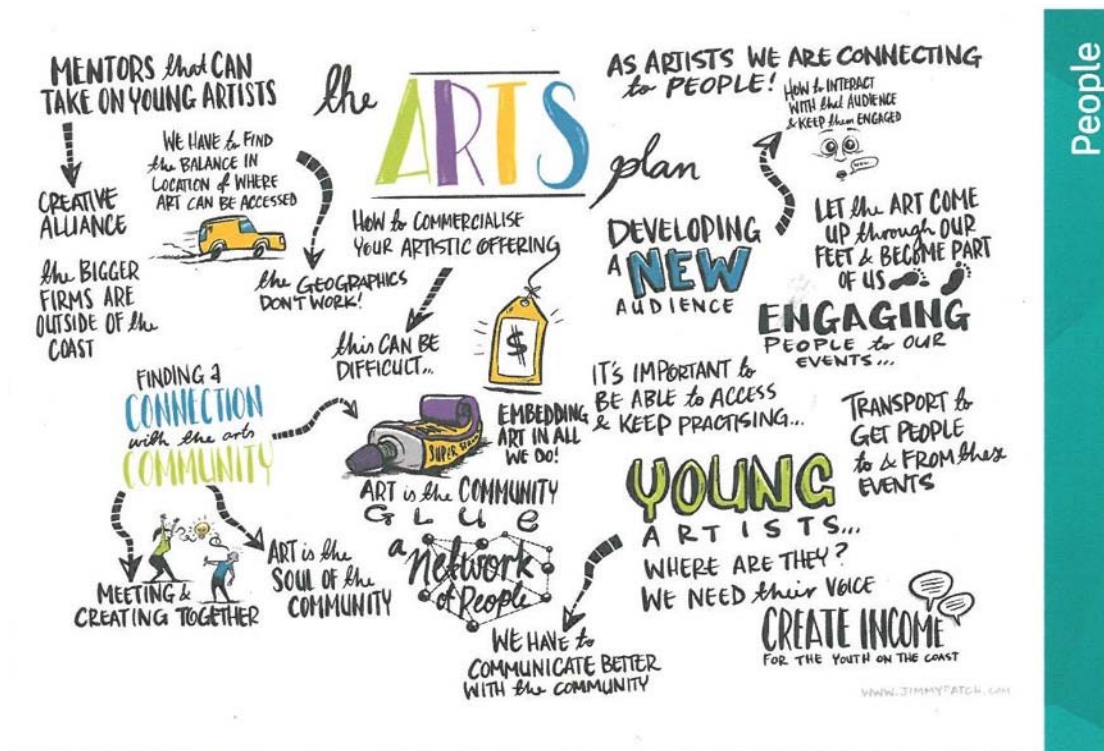 MENTORS that CAN
TAKE ON YOUNG ARTISTS
CREATIVE
ALLIANCE
the BIGGER
FIRMS ARE
OUTSIDE OF the
COAST
WE HAVE to FIND
the BALANCE IN
LOCATION of WHERE
ART CAN BE ACCESSED
the GEOGRAPHICS
DON'T WORK!
the
ARTS
plan
HOW to COMMERCIALISE
YOUR ARTISTIC OFFERING
this CAN BE
DIFFICULT...
$
AS ARTISTS WE ARE CONNECTING
to PEOPLE!
HOW to INTERACT
WITH that AUDIENCE
& KEEP them ENGAGED
DEVELOPING
A NEW
AUDIENCE
LET the ART COME
UP through OUR
FEET & BECOME PART
OF US
ENGAGING
PEOPLE to OUR
EVENTS...
FINDING a
CONNECTION
with the arts
COMMUNITY
MEETING &
CREATING TOGETHER
ART is the
SOUL OF the
COMMUNITY
SUPER
EMBEDDING
ART IN ALL
WE DO!
ART is the COMMUNITY
GLUE
a
Network
of People
IT'S IMPORTANT to
BE ABLE to ACCESS
& KEEP PRACTISING...
TRANSPORT to
GET PEOPLE
to & FROM these
EVENTS
YOUNG
ARTISTS...
WHERE ARE THEY?
WE NEED their VOICE
WE HAVE to
COMMUNICATE BETTER
WITH the COMMUNITY
CREATE INCOME
FOR THE YOUTH ON THE COAST
WWW.JIMMYPATCH.COM
People